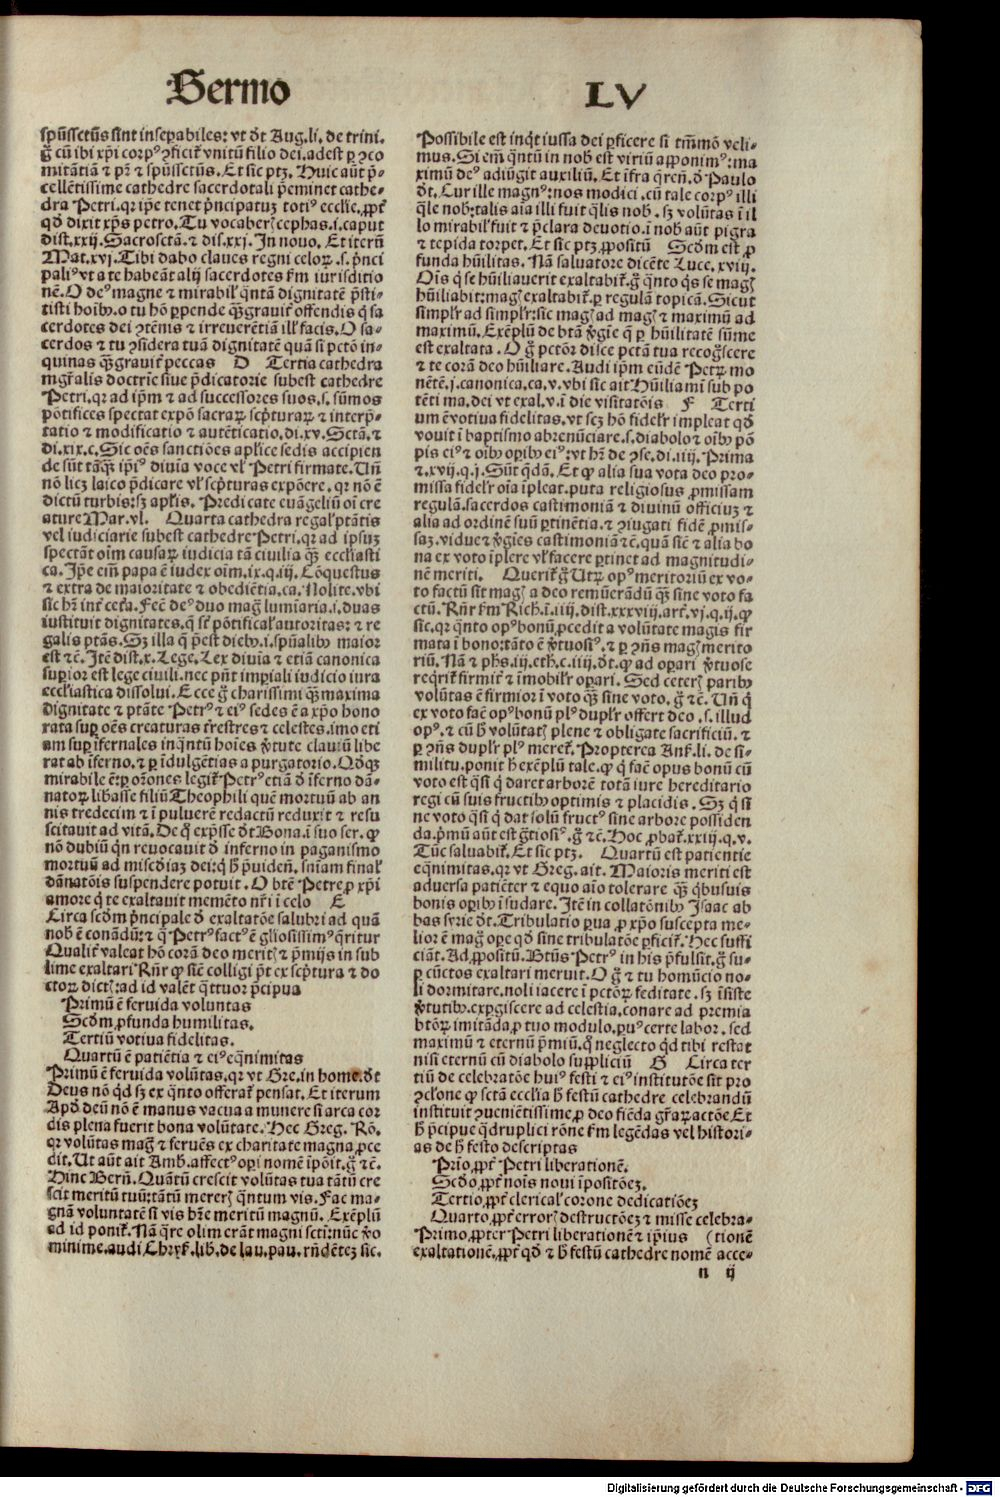 Sermo LV
spūssctūs sint inseꝑabiles: vt dt Aug. li. de trini.
g̃ cū ibi xp̄i corpꝰ ꝯficit̃ vnitū filio dei. adest ꝑ ꝯco
mitātiā ⁊ pr̄ ⁊ spūssctūs. Et sic ptꝫ. Huic aūt p̄⸗
cellētissime cathedre sacerdotali p̄eminet cathe⸗
dra Petri. qꝛ ip̄e tenet p̄ncipatuꝫ totiꝰ ecclīe. ꝓpt̃
qd̄ dixit xp̄s petro. Tu vocaberꝭ cephas. i. caput
dist. xxij. Sacrosctā. ⁊ dis. xxj. In nouo. Et iterū
Mat. xvj. Tibi dabo claues regni celoꝝ. s. p̄nci
paliꝰ vt a te habeāt alij sacerdotes fm iurisditio
nē. O deꝰ magne ⁊ mirabil̓ q̄ntā dignitatē p̄sti⸗
tisti hoībꝰ. o tu hō ꝑpende qꝫgrauit̃ offendis q̄ sa
cerdotes dei ꝯtēnis ⁊ irreuerētiā ill̓ facis. O sa⸗
cerdos ⁊ tu ꝯsidera tuā dignitatē quā si pctō in⸗
quinas qꝫgrauit̃ peccas D Tertia cathedra
mgr̄alis doctrīe siue p̄dicatorie subest cathedre
Petri. qꝛ ad ip̄m ⁊ ad successores suos. s. sūmos
pōtifices spectat expō sacraꝝ scp̄turaꝝ ⁊ interp̄⸗
tatio ⁊ modificatio ⁊ autēticatio. di. xv. Sctā. ⁊
di. xix. c. Sic oēs sanctiōes apl̓ice sedis accipien
de sūt tāqꝫ ip̄iꝰ diuia voce vl̓ Petri firmate. Un̄
nō licꝫ laico p̄dicare vl̓ scp̄turas expōere. qꝛ nō ē
dictū turbis: sꝫ apl̓is. Predicate euāgeliū oī cre
ature Mar. vl. Quarta cathedra regal̓ ptātis
vel iudiciarie subest cathedre Petri. qꝛ ad ipsuꝫ
spectāt oīm causaꝝ iudicia tā ciuilia qꝫ ecclīasti
ca. Ip̄e eīm papa ē iudex oīm. ix. q. iij. Cōquestus
⁊ extra de maioritate ⁊ obediētia. ca. Nolite. vbi
sic hr̄ int̃ cet̃a. Fecē deꝰ duo mag̃ lumīaria. i. duas
instituit dignitates. q̄ st̃ pōtifical̓ autoritas: ⁊ re
galis ptās. Sꝫ illa q̄ p̄est diebꝰ. i. spūalibꝰ maior
est ⁊c̄. Itē dist. x. Lege. Lex diuia ⁊ etiā canonica
suꝑior est lege ciuili. nec pn̄t imp̄iali iudicio iura
ecclīastica dissolui. Ecce g̃ charissimi qꝫ maxima
dignitate ⁊ ptāte Petrꝰ ⁊ eiꝰ sedes ē a xp̄o hono
rata suꝑ oēs creaturas t̃restres ⁊ celestes. imo eti
am suꝑ īfernales inq̄ntū hoīes v̓tute clauiū libe
rat ab īferno. ⁊ ꝑ īdulgētias a purgatorio. Qd̄qꝫ
mirabile ē: ꝑ or̄ones legit̃ Petrꝰ etiā d̓ īferno dā⸗
natoꝝ lib̓asse filiū Theophili quē mortuū ab an
nis tredecim ⁊ ī puluerē redactū reduxit ⁊ resu
scitauit ad vitā. De q̄ exp̄sse dt̄ Bona. ī suo ser. ꝙ
nō dubiū qn̄ reuocauit d̓ inferno in paganismo
mortuū ad miscd̓iaꝫ dei: q̄ h̄ p̄uiden̄. sn̄iam final̓
dānatōis suspendere potuit. O btē Petre ꝓ xp̄i
amore q̄ te exaltauit memēto nr̄i ī celo E
Circa scd̓m p̄ncipale d̓ exaltatōe salubri ad quā
nob̄ ē conādū: ⁊ q̄ Petrꝰ factꝰ ē gl̓iosissimꝰ q̄ritur
Qualit̃ valeat hō corā deo meritꝭ ⁊ p̄mijs in sub
lime exaltari Rn̄r ꝙ sīcē colligi p̄t ex scp̄tura ⁊ do
ctoꝝ dictꝭ: ad id valēt q̄ttuor p̄ncipua
Primū ē feruida voluntas
Scd̓m ꝓfunda humilitas.
Tertiū votiua fidelitas.
Quartū ē patiētia ⁊ eiꝰ eq̄nimitas
Primū ē feruida volūtas. qꝛ vt Gre. in home. dt̄
Deus nō qd̓ sꝫ ex q̄nto offerat̃ pensat. Et iterum
Apd̓ deū nō ē manus vacua a munere si arca cor
dis plena fuerit bona volūtate. Hec Greg. Rō.
qꝛ volūtas mag̃ ⁊ feruēs ex charitate magna ꝓce
dit. Ut aūt ait Amb. affectꝰ oꝑi nomē īpōit. g̃ ⁊c̄.
Hinc Bern̄. Quātū crescit volūtas tua tātū cre
scit meritū tuū: tātū mererꝭ q̄ntum vis. Fac ma⸗
gnā voluntatē si vis hr̄e meritū magnū. Exēplū
ad id ponit̃. Nā q̄re olim erāt magni scti: nūc v̓o
minime. audi Chryst̃. lib. de lau. pau. rn̄dēteꝫ sic.
Possibile est inq̄t iussa dei ꝑficere si tm̄mō veli⸗
mus. Si em̄ q̄ntū in nob̄ est virtū apponimꝰ: ma
ximū deꝰ adiūgit auxiliū. Et īfra q̄ren̄. d̓ Paulo
dt̄. Cur ille magnꝰ: nos modici. cū tale corpꝰ illi
q̄le nob̄: talis aīa illi fuit q̄lis nob̄. sꝫ volūtas ī il
lo mirabil̓ fuit ⁊ p̄clara deuotio. ī nob̄ aūt pigra
⁊ tepida torpet. Et sic ptꝫ ꝓpositū Scd̓m est ꝓ
funda hūilitas. Nā saluatore dicēte Luce. xviij.
Oīs q̄ se hūiliauerit exaltabit̃. g̃ q̄nto q̄s se magꝭ
hūiliabit: magꝭ exaltabit̃. ꝑ regulā topicā. Sicut
simpl̓r ad simpl̓r: sic magꝭ ad magꝭ ⁊ maximū ad
maximū. Exēplū de btā v̓gīe q̄ ꝑ hūilitatē sūme
est exaltata. O g̃ pctōr disce pctā tua recog̃scere
⁊ te corā deo hūiliare. Audi ip̄m eūdē Petꝝ mo
nētē. j. canonica. ca. v. vbi sic ait Hūiliamī sub po
tēti ma. dei vt exal. v. ī die visitatōis F Terti
um ē votiua fidelitas. vt scꝫ hō fidel̓r impleat qd̄
vouit ī baptismo abrenūciare. s. diabolo ⁊ oībꝰ pō
pis eiꝰ ⁊ oībꝰ oꝑibꝰ eiꝰ: vt hr̄ de ꝯse. di. iiij. Prima
⁊. xvij. q. j. Sūt q̄dā. Et ꝙ alia sua vota deo pro⸗
missa fidel̓r oīa īpleat. puta religiosus ꝓmissam
regulā. sacerdos castimoniā ⁊ diuinū officiuꝫ ⁊
alia ad ordinē suū ꝑtinētia. ⁊ ꝯiugati fidē ꝓmis⸗
saꝫ. vidue ⁊ v̓gīes castimoniā ⁊c̄. quā sicē ⁊ alia bo
na ex voto īplere vl̓ facere ꝑtinet ad magnitudi⸗
nē meriti. Querit̃ g̃ Utꝝ opꝰ meritoriū ex vo⸗
to factū sit magꝭ a deo remūerādū qꝫ sine voto fa
ctū. Rn̄r fm Rich. ī. iiij. dist. xxxviij. art̃. vj. q. ij. ꝙ
sic. qꝛ q̄nto opꝰ bonū ꝓcedit a volūtate magis fir
mata ī bono: tāto ē v̓tuosiꝰ. ⁊ ꝑ ꝯn̄s magꝭ merito
riū. Nā ⁊ ph̄s. iij. eth. c. iiij. dt̄. ꝙ ad oꝑari v̓tuose
req̄rit̃ firmit̃ ⁊ īmobil̓r oꝑari. Sed ceterꝭ paribꝰ
volūtas ē firmior ī voto qꝫ sine voto. g̃ ⁊c̄. Un̄ q̄
ex voto facē opꝰ bonū plꝰ dupl̓r offert deo. s. illud
opꝰ. ⁊ cū h̄ volūtatꝭ plene ⁊ obligate sacrificiū. ⁊
ꝑ ꝯn̄s dupl̓r plꝰ meret̃. Propterea Ans̃. li. de si⸗
militu. ponit h̄ exēplū tale. ꝙ q̄ facē opus bonū cū
voto est q̄si q̄ daret arborē totā iure hereditario
regi cū suis fructibꝰ optimis ⁊ placidis. Sꝫ q̄ si
ne voto q̄si q̄ dat solū fructꝰ sine arbore possiden
da. p̄mū aūt est g̃tiosiꝰ. g̃ ⁊c̄. Hoc ꝓbat̃. xxiij. q. v.
Tūc saluabit̃. Et sic ptꝫ. Quartū est patientie
eq̄nimitas. qꝛ vt Greg. ait. Maioris meriti est
aduersa patiēter ⁊ equo aīo tolerare qꝫ q̄busuis
bonis oꝑibꝰ īsudare. Itē in collatōnibꝰ Isaac ab
bas syrie dt̄. Tribulatio ꝑua ꝓ xp̄o suscepta me⸗
lior ē mag̃ oꝑe qd̄ sine tribulatōe ꝑficit̃. Hec suffi
ciāt. Ad ꝓpositū. Btūs Petrꝰ in his p̄fulsit. g̃ su⸗
ꝑ cūctos exaltari meruit. O g̃ ⁊ tu homūcio no⸗
li dormitare. noli iacere ī pctōꝝ feditate. sꝫ īsiste
v̓tutibꝰ. exꝑgiscere ad celestia. conare ad premia
btōꝝ imitāda ꝓ tuo modulo. ꝑuꝰ certe labor. sed
maximū ⁊ eternū p̄miū. q̄ neglecto qd̓ tibi restat
nisi eternū cū diabolo suppliciū G Circa ter
tiū de celebratōe huiꝰ festi ⁊ eiꝰ institutōe sit pro
ꝯclone ꝙ sctā ecclīa h̄ festū cathedre celebrandū
instituit ꝯuenīetissime ꝓ deo fiēda gr̄aꝝ actōe Et
h̄ p̄cipue q̄druplici rōne fm legēdas vel histori⸗
as de h̄ festo descriptas
Prīo ꝓpt̃ Petri liberationē.
Scd̓o ꝓpt̃ noīs noui īpositōeꝫ.
Tertio ꝓpt̃ clerical̓ corone dedicatiōeꝫ
Quarto ꝓpt̃ errorꝭ destructōeꝫ ⁊ misse celebra⸗
Primo ꝓpter Petri liberationē ⁊ ip̄ius (tionē
exaltationē. ꝓpt̃ qd̄ ⁊ h̄ festū cathedre nomē acce⸗
n ij
Digitalisierung gefördert durch die Deutsche Forschungsgemeinschaft - DFG